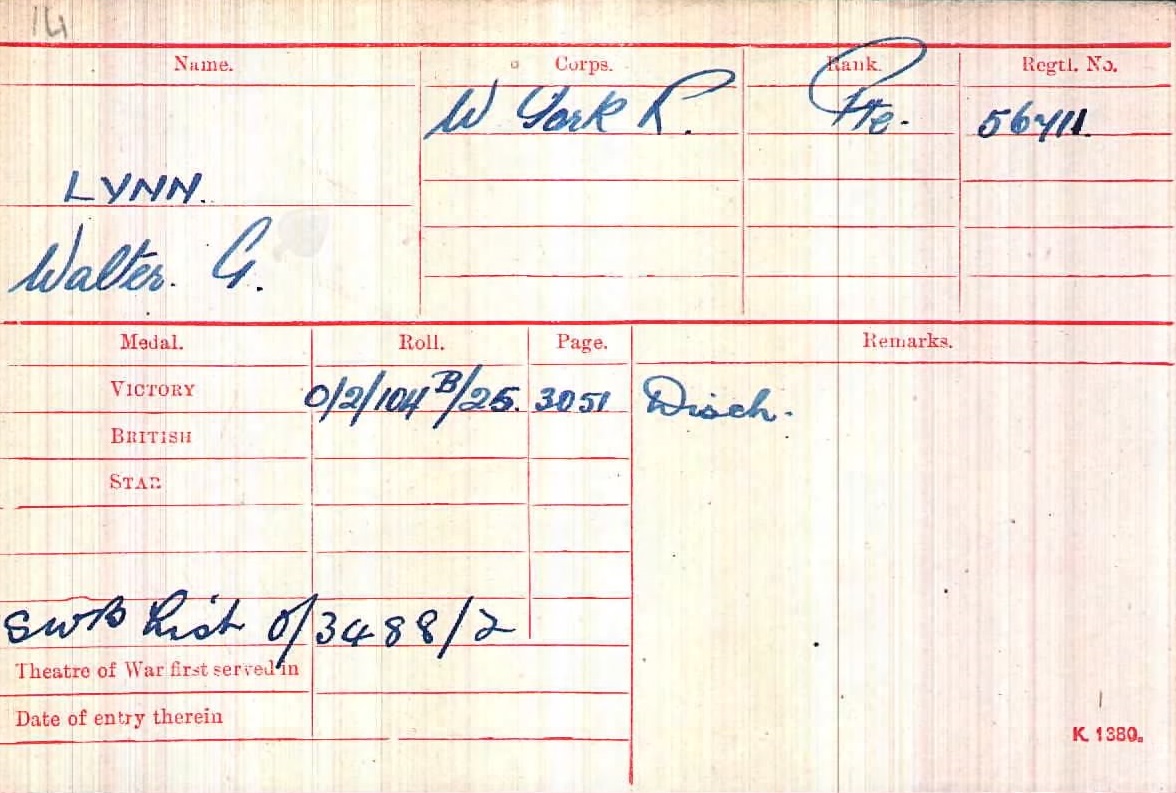 14
Name. Corps. Rank. Regtl. No.
W York R. Pte. 56711
LYNN.
Walter. G.
Medal. Roll. Page. Remarks.
VICTORY 0/2/104 B/25. 3051 Disch.
BRITISH
STAR
SWB List 0/3488/2
Theatre of War first served in
Date of entry therein
K. 1380.